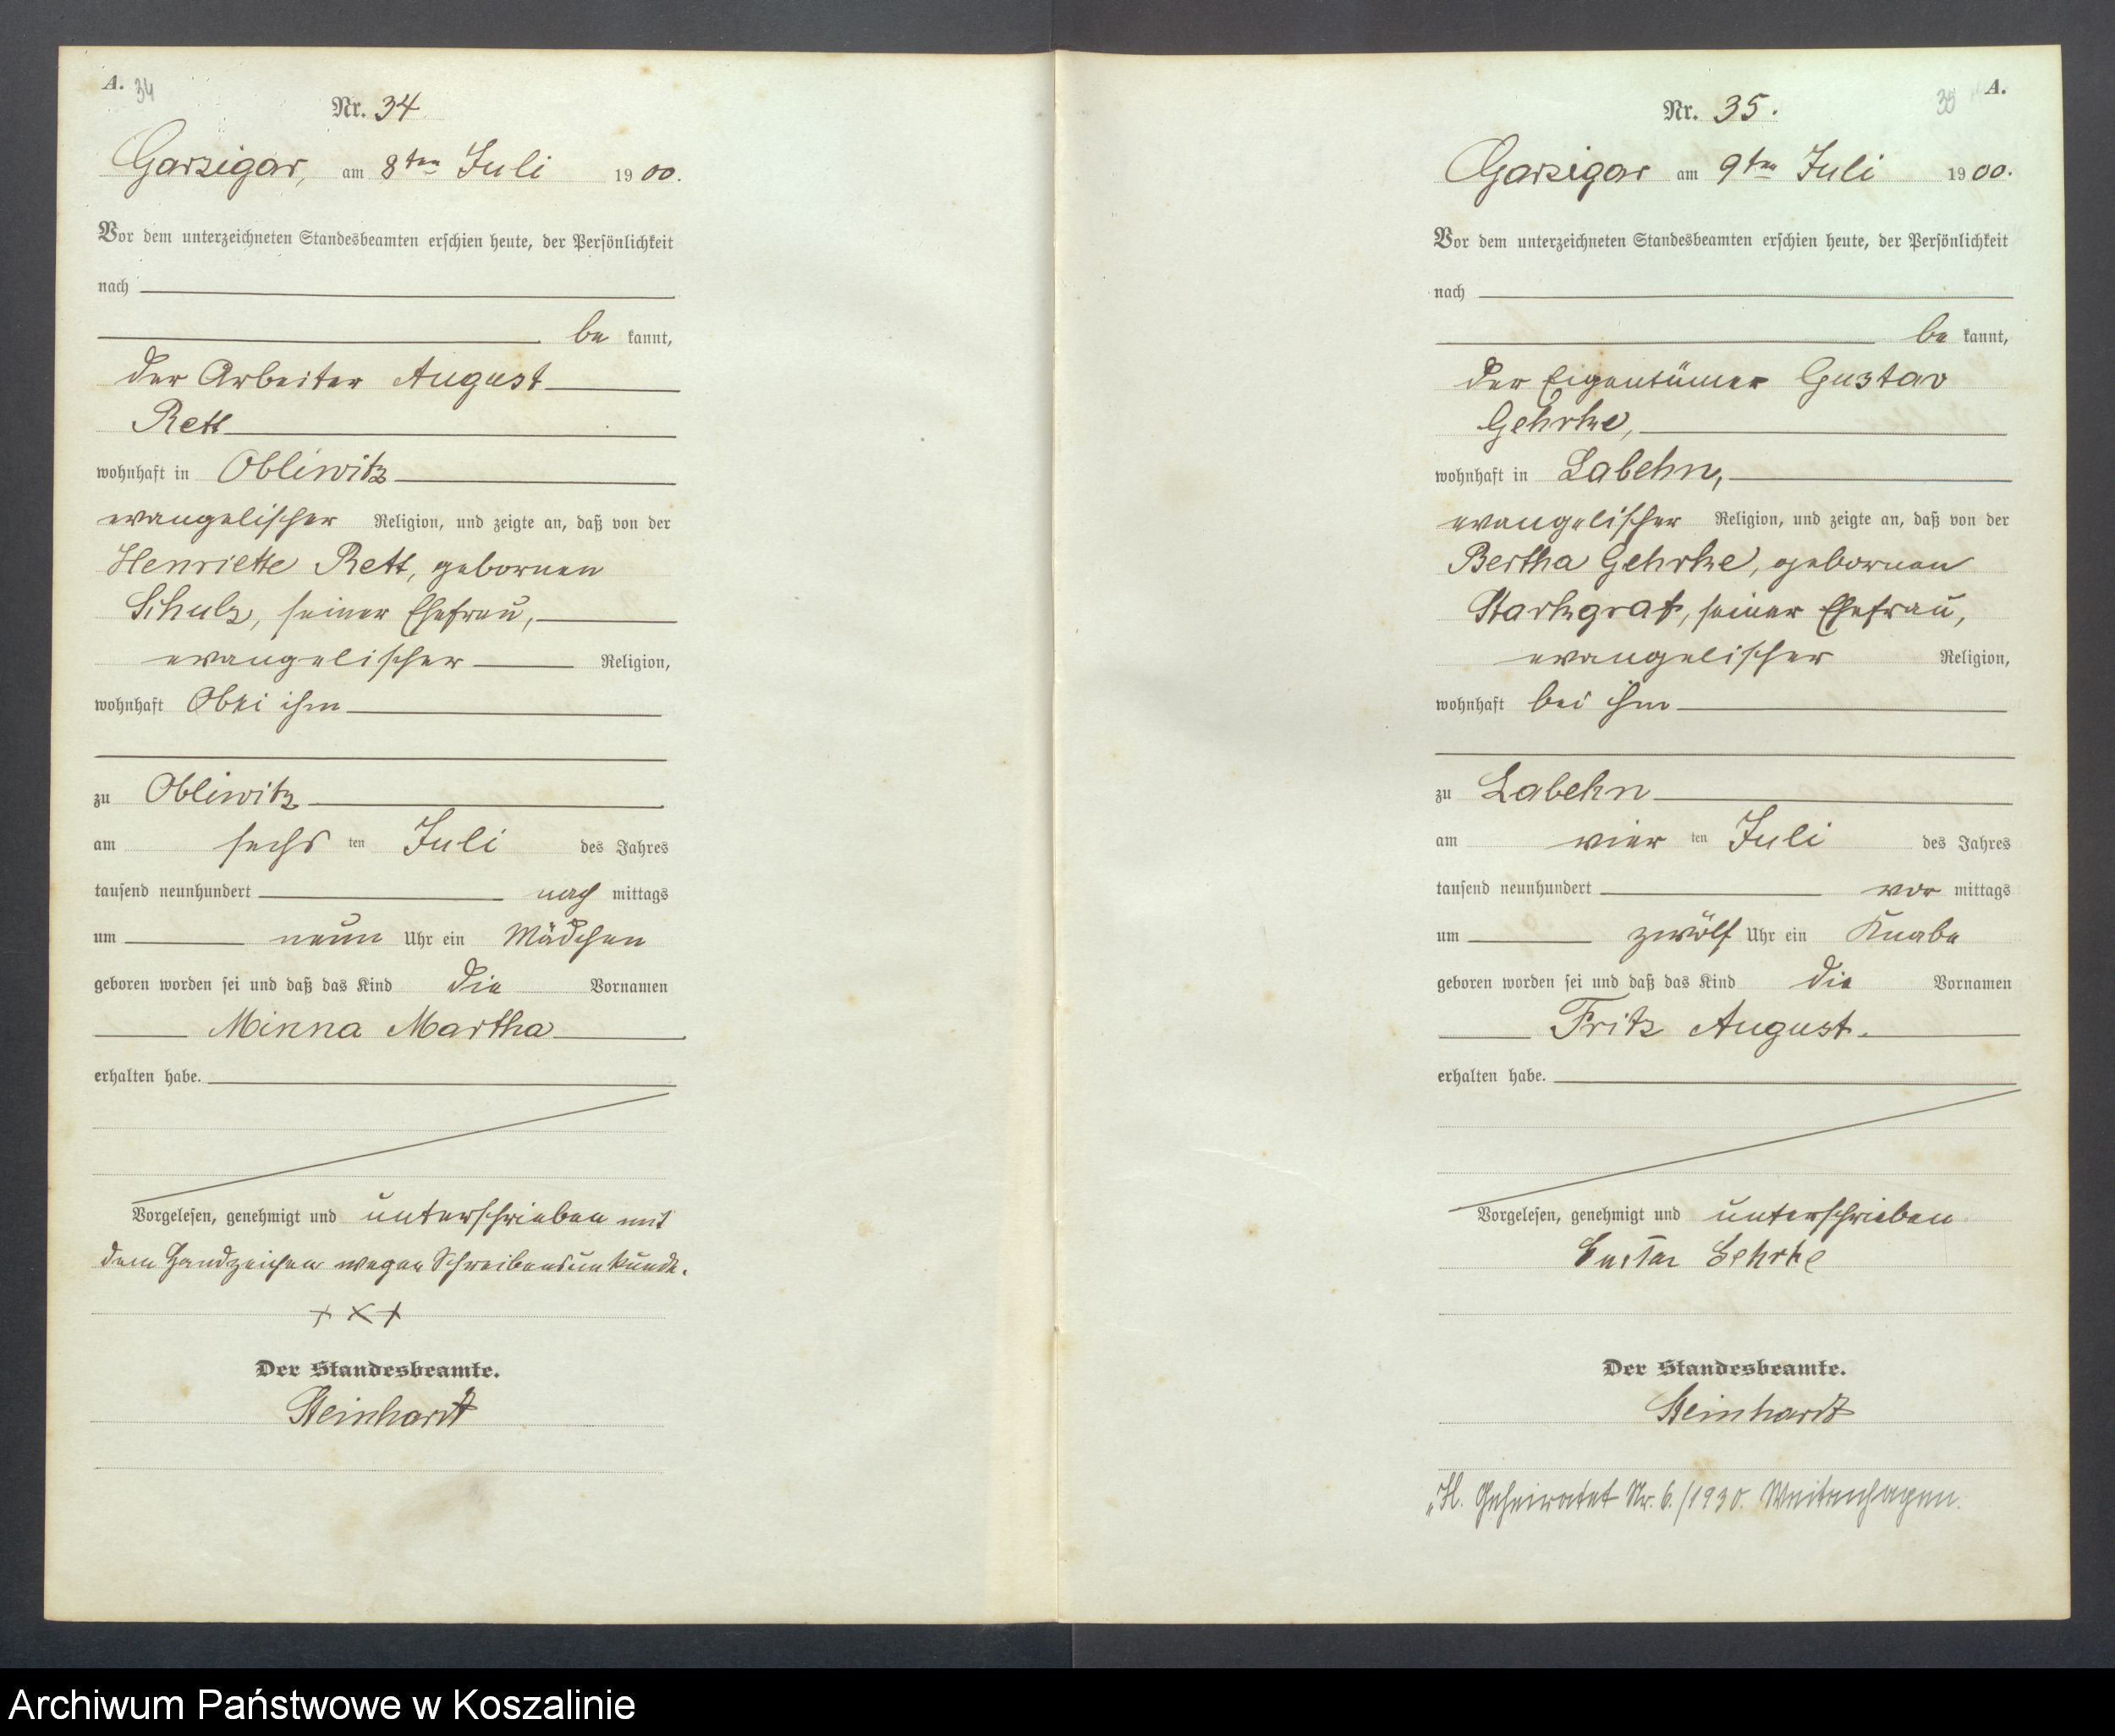 A. 34
Nr. 34
Garzigar, am 8ten Juli 1900.
Vor dem unterzeichneten Standesbeamten erschien heute, der Persönlichkeit
nach
be kannt,
der Arbeiter August
Rett
wohnhaft in Obliwitz
evangelischer Religion, und zeigte an, daß von der
Henriette Rett, gebornen
Schulz, seiner Ehefrau,
evangelischer Religion,
wohnhaft bei ihm
zu Obliwitz
am sechs ten Juli des Jahres
tausend neunhundert nach mittags
um neun Uhr ein Mädchen
geboren worden sei und daß das Kind die Vornamen
Minna Martha
erhalten habe.
Vorgelesen, genehmigt und unterschrieben mit
dem Handzeichen wegen Schreibensunkunde.
+ X +
Der Standesbeamte.
Steinhardt
35 A.
Nr. 35.
Garzigar am 9ten Juli 1900.
Vor dem unterzeichneten Standesbeamten erschien heute, der Persönlichkeit
nach
be kannt,
der Eigentümer Gustav
Gehrke,
wohnhaft in Labehn,
evangelischer Religion, und zeigte an, daß von der
Bertha Gehrke, gebornen
Starkgraf, seiner Ehefrau,
evangelischer Religion,
wohnhaft bei ihm
zu Labehn
am vier ten Juli des Jahres
tausend neunhundert vor mittags
um zwölf Uhr ein Knabe
geboren worden sei und daß das Kind die Vornamen
Fritz August.
erhalten habe.
Vorgelesen, genehmigt und unterschrieben
Gustav Gehrke
Der Standesbeamte.
Steinhardt
Geheiratet Nr. 6./1930. Weitenhagen.
Archiwum Państwowe w Koszalinie